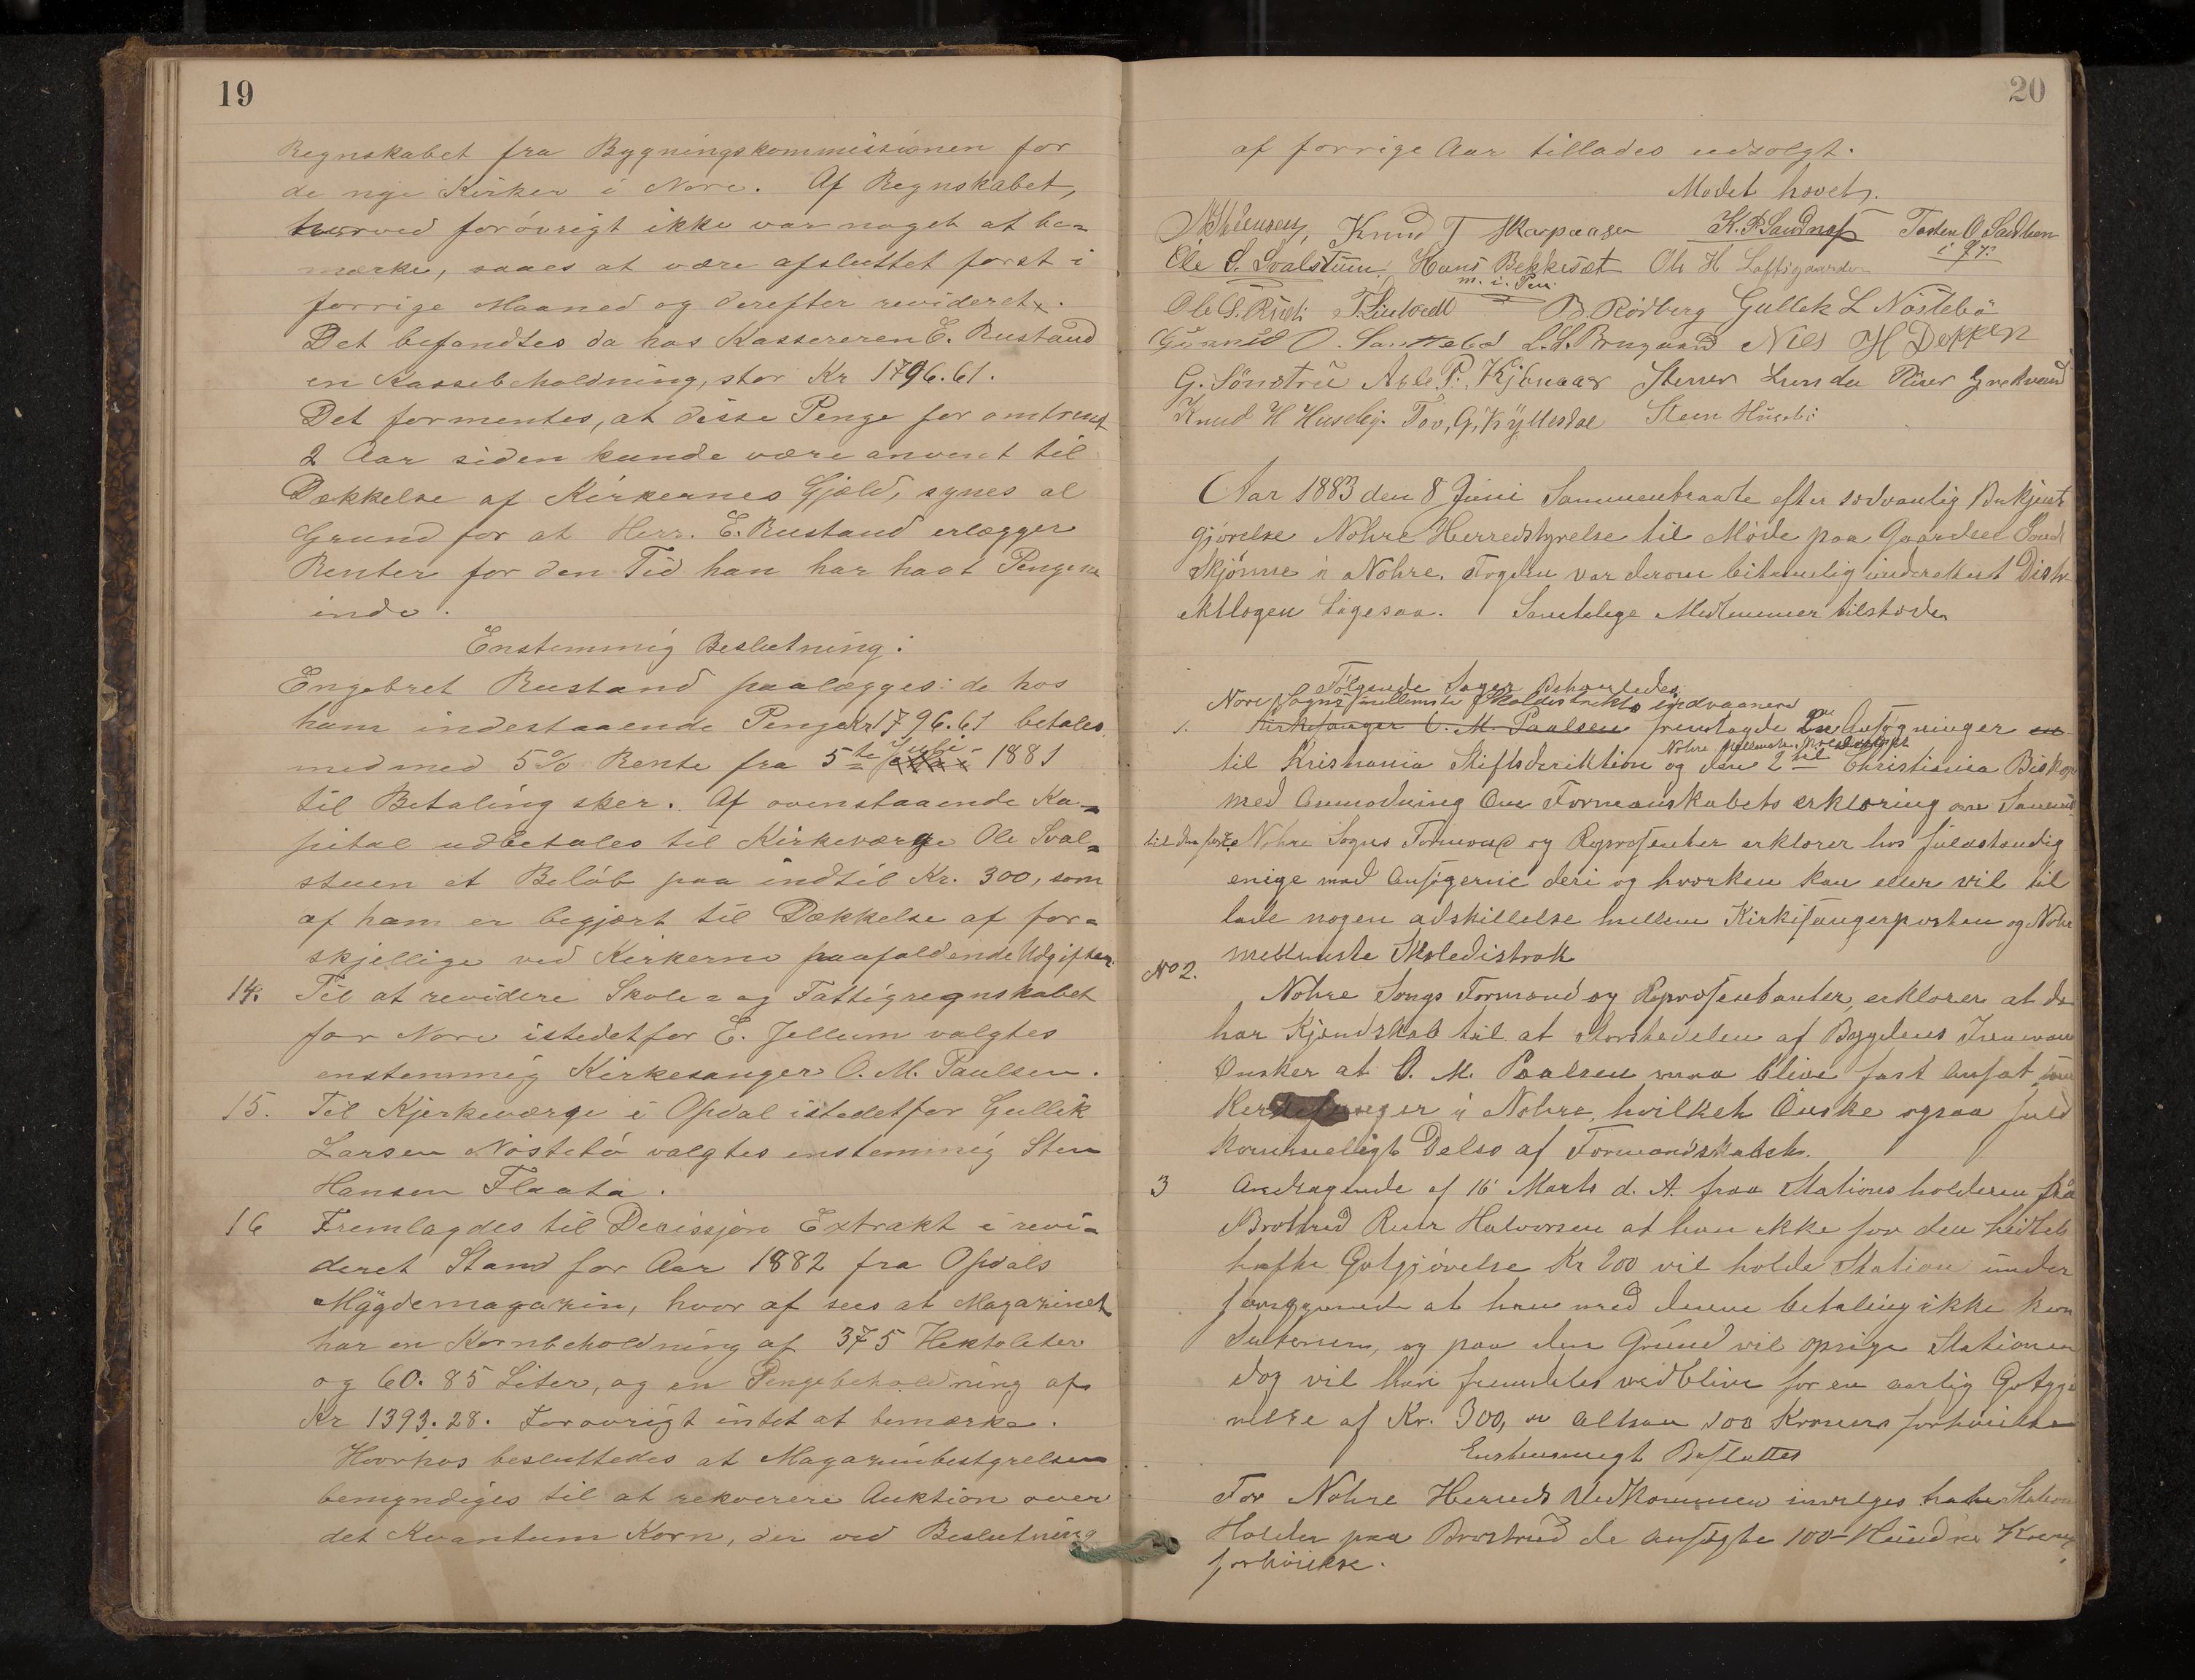 19
Regnskabet fra Bygningskommissionen for
de nye Kirker i Nore. Af Regnskabet,
hvorved forøvrigt ikke var noget at be=
mærke, saaes at være afsluttet først i
forrige Maaned og derefter revideret.
Det befandtes da hos Kassereren E. Rustand
en Kassebeholdning, stor Kr 1796.61.
Det formentes, at disse Penge for omtrent
2 Aar siden kunde være anvent til
Dækkelse af Kirkernes Gjæld, synes al
Grund for at Herr. E. Rustand erlægger
Renter for den Tid han har havt Pengene
inde.
Enstemmig Beslutning:
Engebret Rustand paalægges: de hos
ham indestaaende Penge Kr 1796.61 betales
med med 5% Rente fra 5te Juli 1881
til Betaling sker. Af ovenstaaende Ka=
pital udbetales til Kirkeværge Ole Sval=
stuen et Beløb paa indtil Kr. 300, som
af ham er begjært til Dækkelse af for=
skjellige ved Kirkerne paafaldende Udgifter.
14. Til at revidere Skole= og Fattigregnskabet
for Nore istedetfor E. Jellum valgtes
enstemmig Kirkesanger O. M. Paulsen.
15. Til Kjerkeværge i Opdal istedetfor Gullik
Larsen Nøstebø valgtes enstemmig Sten
Hansen Flaata.
16 Fremlagdes til Decissjon Extrakt i revi=
deret Stand for Aar 1882 fra Opdals
Mÿgdemagazin, hvor af sees at Magazinet
har en Kornbeholdning af 375 Hektoliter
og 60.85 Liter, og en Pengebeholdning af
Kr 1393.28. Forøvrigt intet at bemærke.
Hvorhos besluttedes at Magazinbestyrelsen
bemyndiges til at rekverere Auktion over
det Kvantum Korn, der ved Beslutning
20
af forrige Aar tillades udsolgt.
Mødet hævet.
Knud T Skarpaasen K. P. Sandnæs Tosten O
Ole S. Svalstuen Hans Bekkesæt Ole H
m. i. Pen
B. Rødberg Gullek L Nøstebø
Gunnild O. L. L. Brugaard Nils H Dokken
G. Sønstrü P. Kjønaas Stener Lunde
Knud H Huseby. Tov, G, Kÿllesdal Steen Húsebi
Aar 1883 den 8 Juni Sammentraate efter sedvanlig Bekjent
gjørelse Nohre Herredstyrelse til Møde paa Gaarden
Skjønne i Nohre. Fogden var derom betimelig underettet Distr
iktlægen Ligesaa. Samtelige Medlemmer tilstede
Følgende Sager Behandledes
Nore Sogns mellemste Skoledistrikts indvaanere
1. Kirkesanger O. M. Paulsen fremlagde Ansøgninger en
Nohre mellemste
til Kristiania Stiftsderiktion og den 2 til Christiania Biskop
med Anmodning Om Formanskabets erklæring
til den første Nohre Sogns Formænd og Representer erklærer hos fuldstændig
enige med Ansøgerne deri og hvorken kan eller vil til
lade nogen adskillelse mellem Kirkesangerposten og Nohre
mellemste Skoledistrik
No 2.
Nohre Songs Formænd og Representanter, erklærer at de
har Kjendskab til at Størstedelen af Bygdens
Ønsker at O. M. Paalsen maa blive fast Ansat som
Kerkesanger i Nohre, hvilket Ønske ogsaa fuld
kommeligt Deles af Formandskabet.
3 Andragende af 16 Marts d. A. fraa Stationsholderen fra
Halvorsen at han ikke for den hidtil
hafte Gotgjørelse Kr 200 vil holde Station under
at han med denne betaling ikke kan
og paa den Grund vil opsige Stationen
dog vil han fremdeles vedblive for en aarlig Gotgjø
relse af Kr. 300, altsaa 100 Kroners forhøielse
Enstemmigt Besluttes
For Nohre Herreds Vedkommen Station
Holder paa de ansøgte 100 Hundre Kroners
forhøielse.